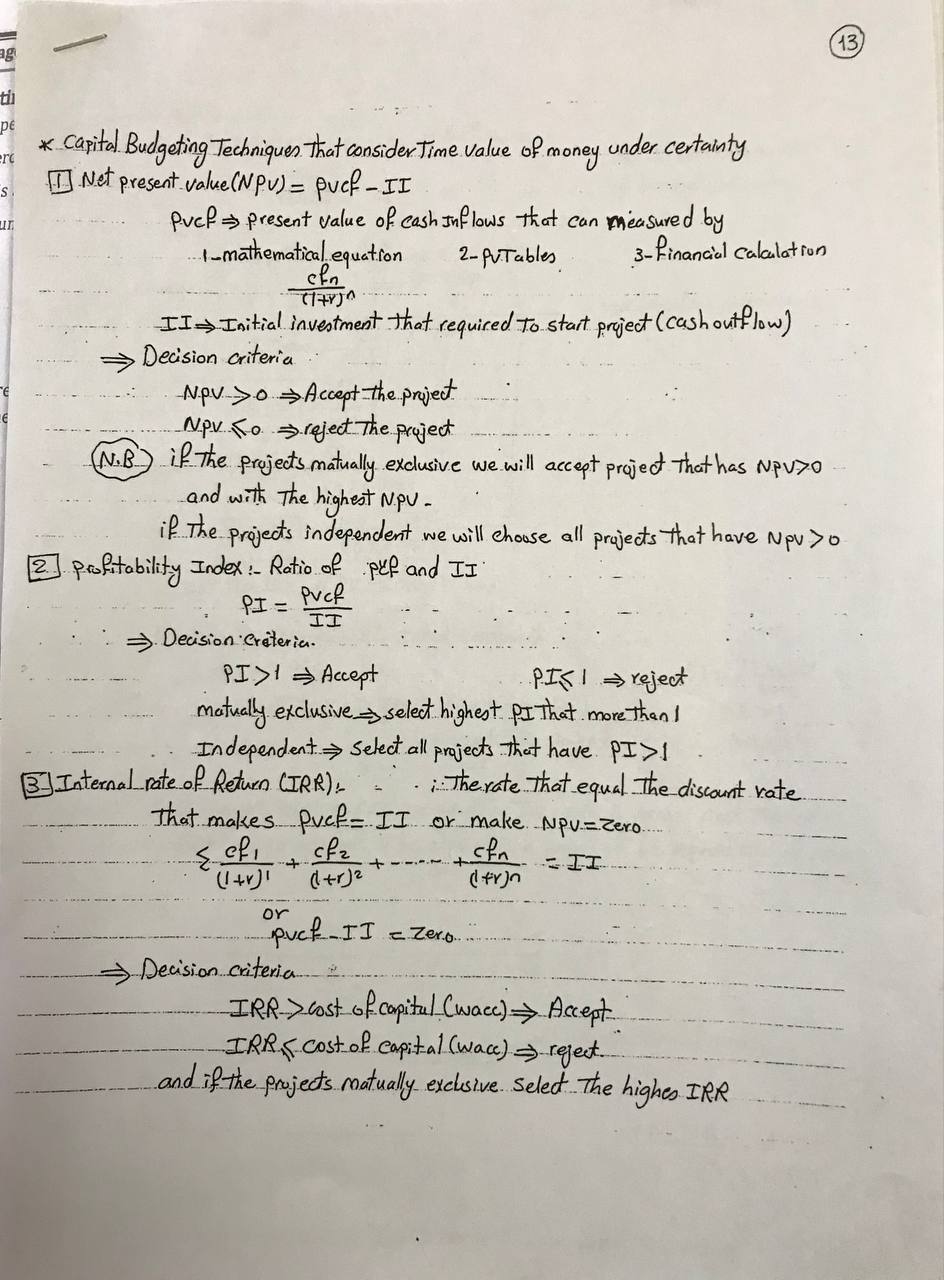 13
* Capital Budgeting Techniques That consider Time value of money under certainty
1 Net present value (NPV) = pvcf - II
pvcf ⇒ present value of cash Inflows that can measured by
1-mathematical equation 2-pv.Tables 3-financial calculation
cfn/(1+r)^n
II ⇒ Initial investment that required To start project (cash outflow)
⇒ Decision criteria
NPV > 0 ⇒ Accept the project
NPV ≤ 0 ⇒ reject The project
N.B if the projects matually exclusive we will accept project That has NPV>0
and with The highest NPV.
if The projects independent we will choose all projects That have NPV > 0
2 Profitability Index :- Ratio of pcf and II
PI = pvcf/II
⇒ Decision creteria.
PI > 1 ⇒ Accept PI ≤ 1 ⇒ reject
matually exclusive ⇒ select highest PI That more Than 1
Independent ⇒ select all projects That have PI > 1
3 Internal rate of Return (IRR) :- : The rate That equal The discount rate
That makes pvcf = II or make NPV = Zero
Σ cf1/(1+r)^1 + cf2/(1+r)^2 + ----- + cfn/(1+r)^n = II
or
pvcf - II = Zero
⇒ Decision criteria
IRR > cost of capital (wacc) ⇒ Accept
IRR ≤ cost of capital (wacc) ⇒ reject
and if the projects matually exclusive select The highes IRR